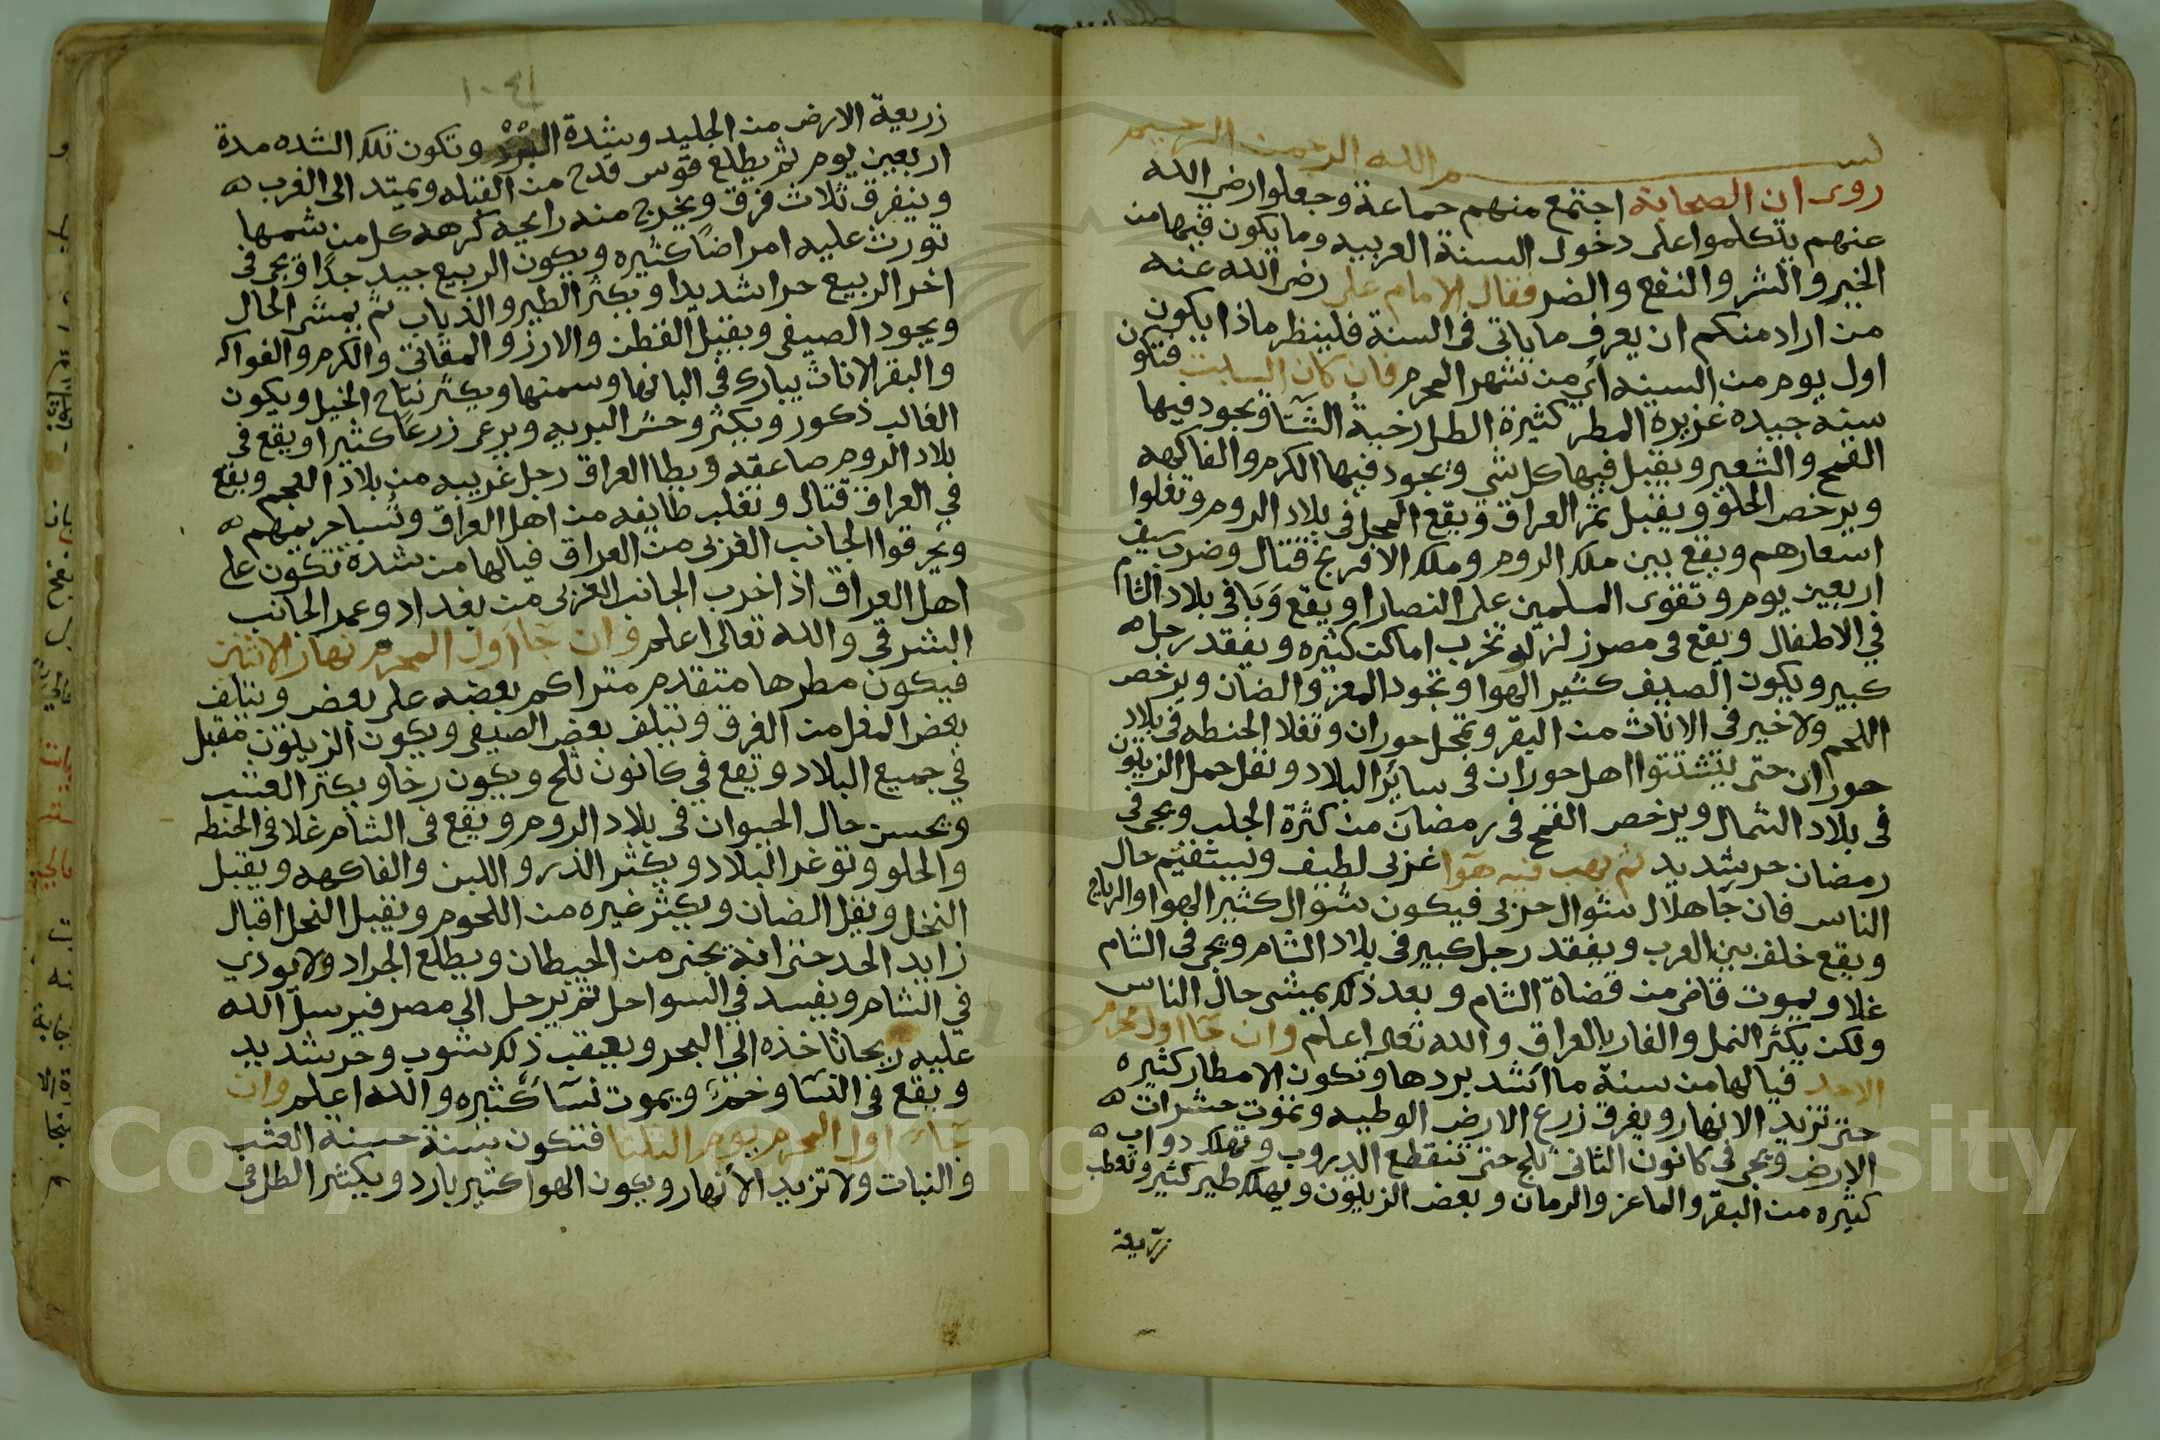 بسم الله الرحمن الرحيم
روى ان الصحابة اجتمع منهم جماعة وجعلوا رضي الله
عنهم يتكلموا على دخول السنة العربيه وما يكون فيها من
الخير والشر والنفع والضر فقال الامام علي رضي الله عنه
من اراد منكم ان يعرف ما ياتي في السنة فلينظر ماذا يكون
اول يوم من السنه أي من شهر المحرم فان كان السبت فتكون
سنه جيده غزيرة المطر كثيرة الطل رخية الشتا ويجود فيها
القمح والشعير ويقبل فيها كل شي ويجود فيها الكرم والفاكهه
ويرخص الحلو ويقبل ثمر العراق ويقع المحل في بلاد الروم وتغلوا
اسعارهم ويقع بين ملك الروم وملك الافرنج قتال وضرب سيف
اربعين يوم وتقوى المسلمين على النصارا ويقع وَبَا في بلاد الشام
في الاطفال ويقع في مصر زلزله وتخرب اماكن كثيره ويفقد رجل
كبير ويكون الصيف كثير الهوا وتجود المعز والضان ويرخص
اللحم ولا خير في الاناث من البقر وتمحل حوران وتغلا الحنطه في بلاد
حوران حتى يتشتتوا اهل حوران في سائر البلاد ونقل حمل الزيتون
في بلاد الشمال ويرخص القمح في رمضان من كثرة الجلب ويجي في
رمضان حر شديد ثم يهب فيه هوا غربي لطيف ويستقيم حال
الناس فان جا هلال شوال حربي فيكون شوال كثير الهوا والرياح
ويقع خلف بين العرب ويفقد رجل كبير في بلاد الشام ويجي في الشام
غلا ويموت قاضي من قضاة الشام وبعد ذلك يمشي حال الناس
ولكن يكثر النمل والفار بالعراق والله تعالى اعلم وان جا اول محرم
الاحد فيالها من سنة ما اشد بردها وتكون الامطار كثيره
حتى تزيد الانهار ويغرق زرع الارض الوطيه وتموت حشرات
الارض ويجي في كانون الثاني ثلج حتى تنقطع الدروب وتهلك دواب
كثيره من البقر والماعز والرمان وبعض الزيتون ويهلك طير كثير وتعطب
زريعة
زريعة الارض من الجليد وشدة البرد وتكون تلك الشده مدة
اربعين يوم ثم يطلع قوس قدح من القبله ويمتد الى الغرب
ويتفرق ثلاث فرق ويخرج منه رايحه كرهه كل من شمها
تورث عليه امراضاً كثيره ويكون الربيع جيد جداً ويجي في
اخر الربيع حرا شديدا ويكثر الطير والذباب ثم يمشي الحال
ويجود الصيفي ويقبل القطن والارز والمقاتي والكرم والفواكه
والبقر الاناث يبارك في البانها وسمنها ويكثر نتاج الخيل ويكون
الغالب ذكور ويكثر وحش البريه ويرعى زرعاً كثيرا ويقع في
بلاد الروم صاعقه ويطا العراق رجل غريبه من بلاد العجم ويقع
في العراق قتال وتغلب طايفه من اهل العراق وتُسبا حريمهم
ويحرقوا الجانب الغربي من العراق فيالها من شدة تكون على
اهل العراق اذا خرب الجانب الغربي من بغداد وعمر الجانب
الشرقي والله تعالى اعلم وان جا اول المحرم نهار الاثنين
فيكون مطرها متقدم متراكم بعضه على بعض ويتلف
بعض المغل من الغرق ويتلف بعض الصيفي ويكون الزيتون مقبل
في جميع البلاد ويقع في كانون ثلج ويكون رخا ويكثر العشب
ويحسن حال الحيوان في بلاد الروم ويقع في الشام غلا في الحنطه
والحلو وتوغر البلاد ويكثر الذر واللبن والفاكهه ويقبل
النخل ونقل الضان ويكثر غيره من اللحوم ويقبل النحل اقبال
زايد الحد حتى انه يجني من الحيطان ويطلع الجراد ولا يوذي
في الشام ويفسد في السواحل ثم يرحل الى مصر فيرسل الله
عليه ريحا تاخذه الى البحر ويعيقب ذلك شوب وحر شديد
ويقع في النسا وخم ويموت نسآ كثيره والله اعلم وان
جاء اول المحرم يوم الثلثا فتكون سنة حسنة العشب
والنبات ولا تزيد الأنهار ويكون الهوا كثير بارد ويكثر الطل في
Copyright © King Saud University